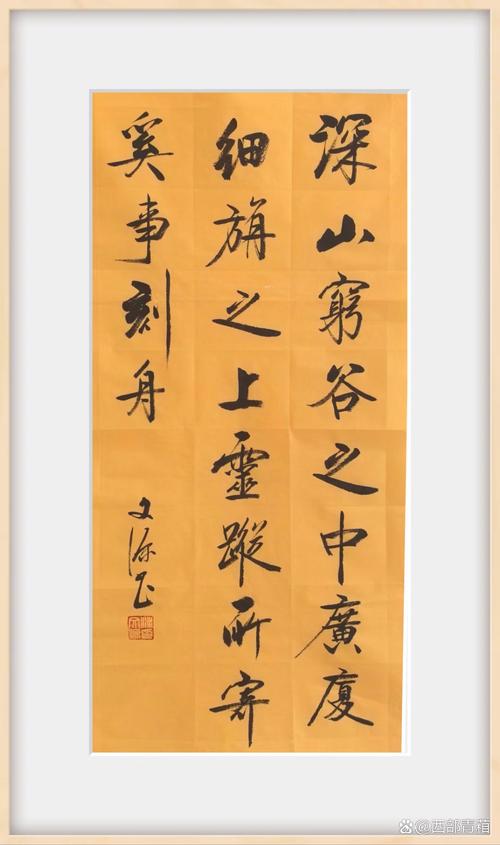 深山窮谷之中廣廈
細旃之上靈蹤所寄
奚事刻舟
文源
@西部青箱